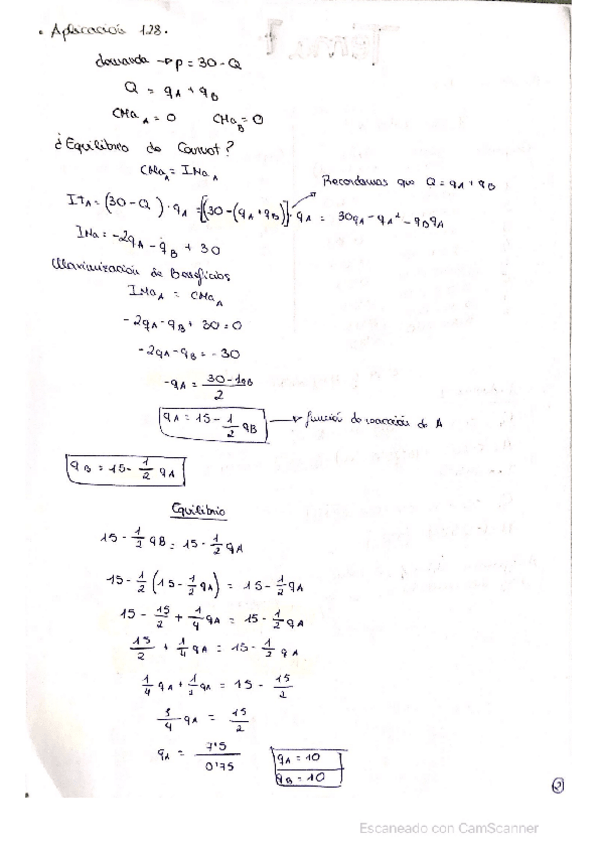 • Aplicación 1.28.
demanda → p = 30 - Q
Q = qA + qB
CMaA = 0 CMaB = 0
¿Equilibrio de Cournot?
CMaA = IMaA
Recordamos que Q = qA + qB
ItA = (30 - Q) · qA = [(30 - (qA + qB)] · qA = 30qA - qA² - qBqA
IMa = -2qA - qB + 30
Maximización de Beneficios
IMaA = CMaA
-2qA - qB + 30 = 0
-2qA - qB = -30
-qA = 30 - 1qB / 2
qA = 15 - 1/2 qB → función de reacción de A
qB = 15 - 1/2 qA
Equilibrio
15 - 1/2 qB = 15 - 1/2 qA
15 - 1/2 (15 - 1/2 qA) = 15 - 1/2 qA
15 - 15/2 + 1/4 qA = 15 - 1/2 qA
15/2 + 1/4 qA = 15 - 1/2 qA
1/4 qA + 1/2 qA = 15 - 15/2
3/4 qA = 15/2
qA = 7'5 / 0'75
qA = 10
qB = 10
2
Escaneado con CamScanner